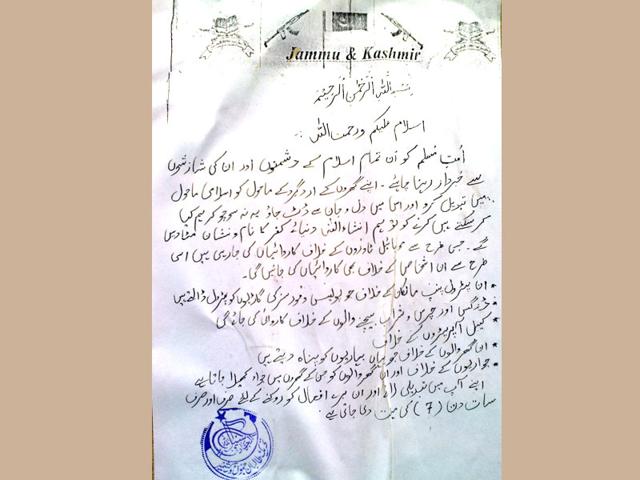 Jammu & Kashmir
بسم اللہ الرحمٰن الرحیم
اسلام علیکم ورحمت اللہ
اُمتِ مسلم کو اُن تمام اسلام کے دشمنوں اور ان کی شازشوں
سے خبردار رہنا چاہئے ۔ اپنے گھروں کے اردگرد کے ماحول کو اسلامی ماحول
میں تبدیل کرو اور اس میں دل و جان سے ڈٹ جاؤ یہ نہ سوچو کہ ہم کیا
کر سکتے ہیں کرنے کو تو ہم انشاءاللہ دنیا سے کفر کا نام و نشان مٹا دیں
گے ۔ جس طرح سے موبائل ٹاوروں کے خلاف کاروائیاں کی جا رہی ہیں اسی
طرح سے ان اشخاص کے خلاف بھی کاروائیاں کی جائیں گی ۔
* ان پٹرول پمپ مالکان کے خلاف جو پولیس و فورسز کی گاڑیوں کو پٹرول ڈالتے ہیں
* ڈرگس اور چرس و شراب بیچنے والوں کے خلاف کاروائی کی جائے گی
* کیبل آپریٹروں کے خلاف
* ان گھر والوں کے خلاف جو یہاں بہاریوں کو پناہ دیتے ہیں
* جواریوں کے خلاف اور ان گھر والوں کو جن کے گھروں میں جواء کھیلا جاتا ہے
اپنے آپ میں تبدیلی لائے اور ان برے افعال کو روکنے کے لئے صرف اور صرف
سات دن (7) کی مہت دی جاتی ہے